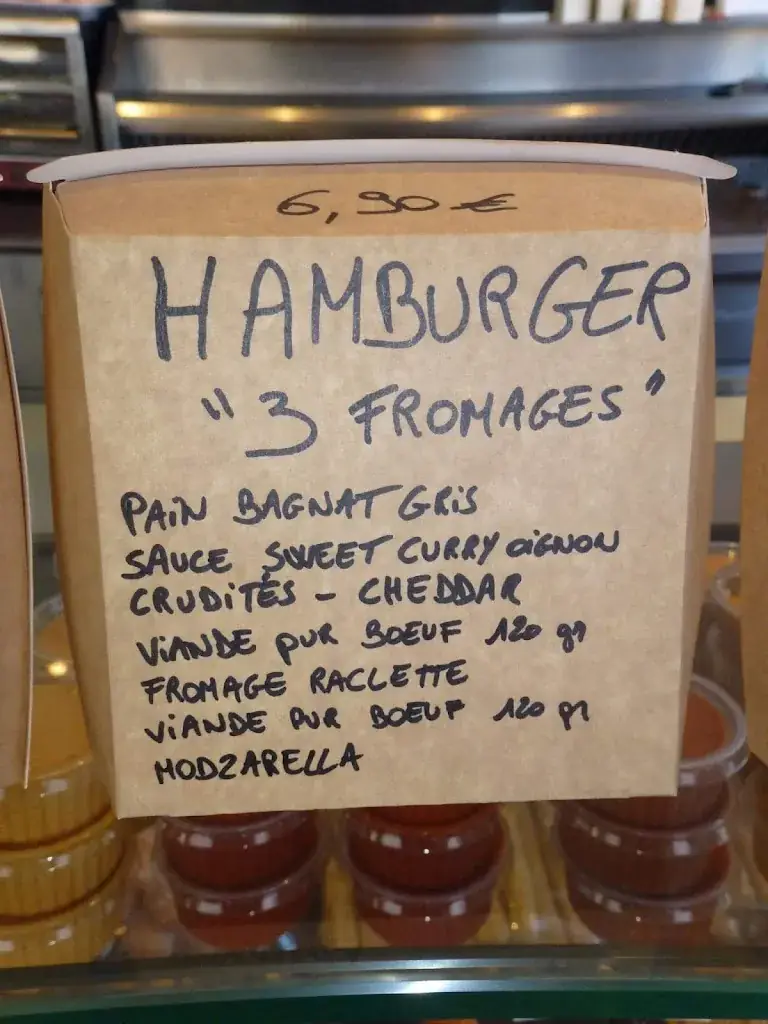 6,90 €
HAMBURGER
"3 FROMAGES"
PAIN BAGNAT GRIS
SAUCE SWEET CURRY OIGNON
CRUDITÉS - CHEDDAR
VIANDE PUR BOEUF 120 gr
FROMAGE RACLETTE
VIANDE PUR BOEUF 120 gr
MODZARELLA